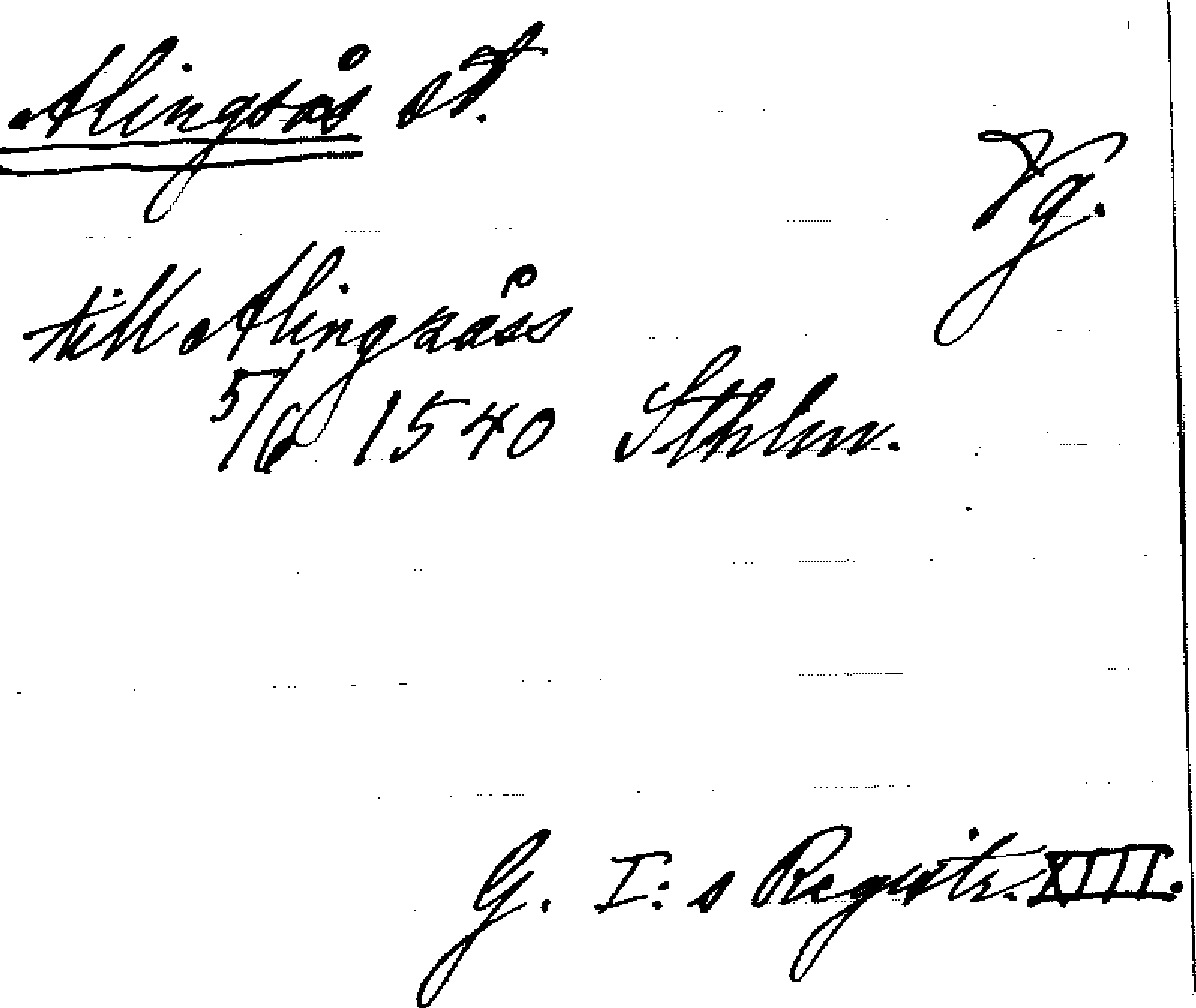 Alingsås st.
Vg.
till Alingxåss
5/6 1540 Sthlm.
G. I:s Registr. XIII.